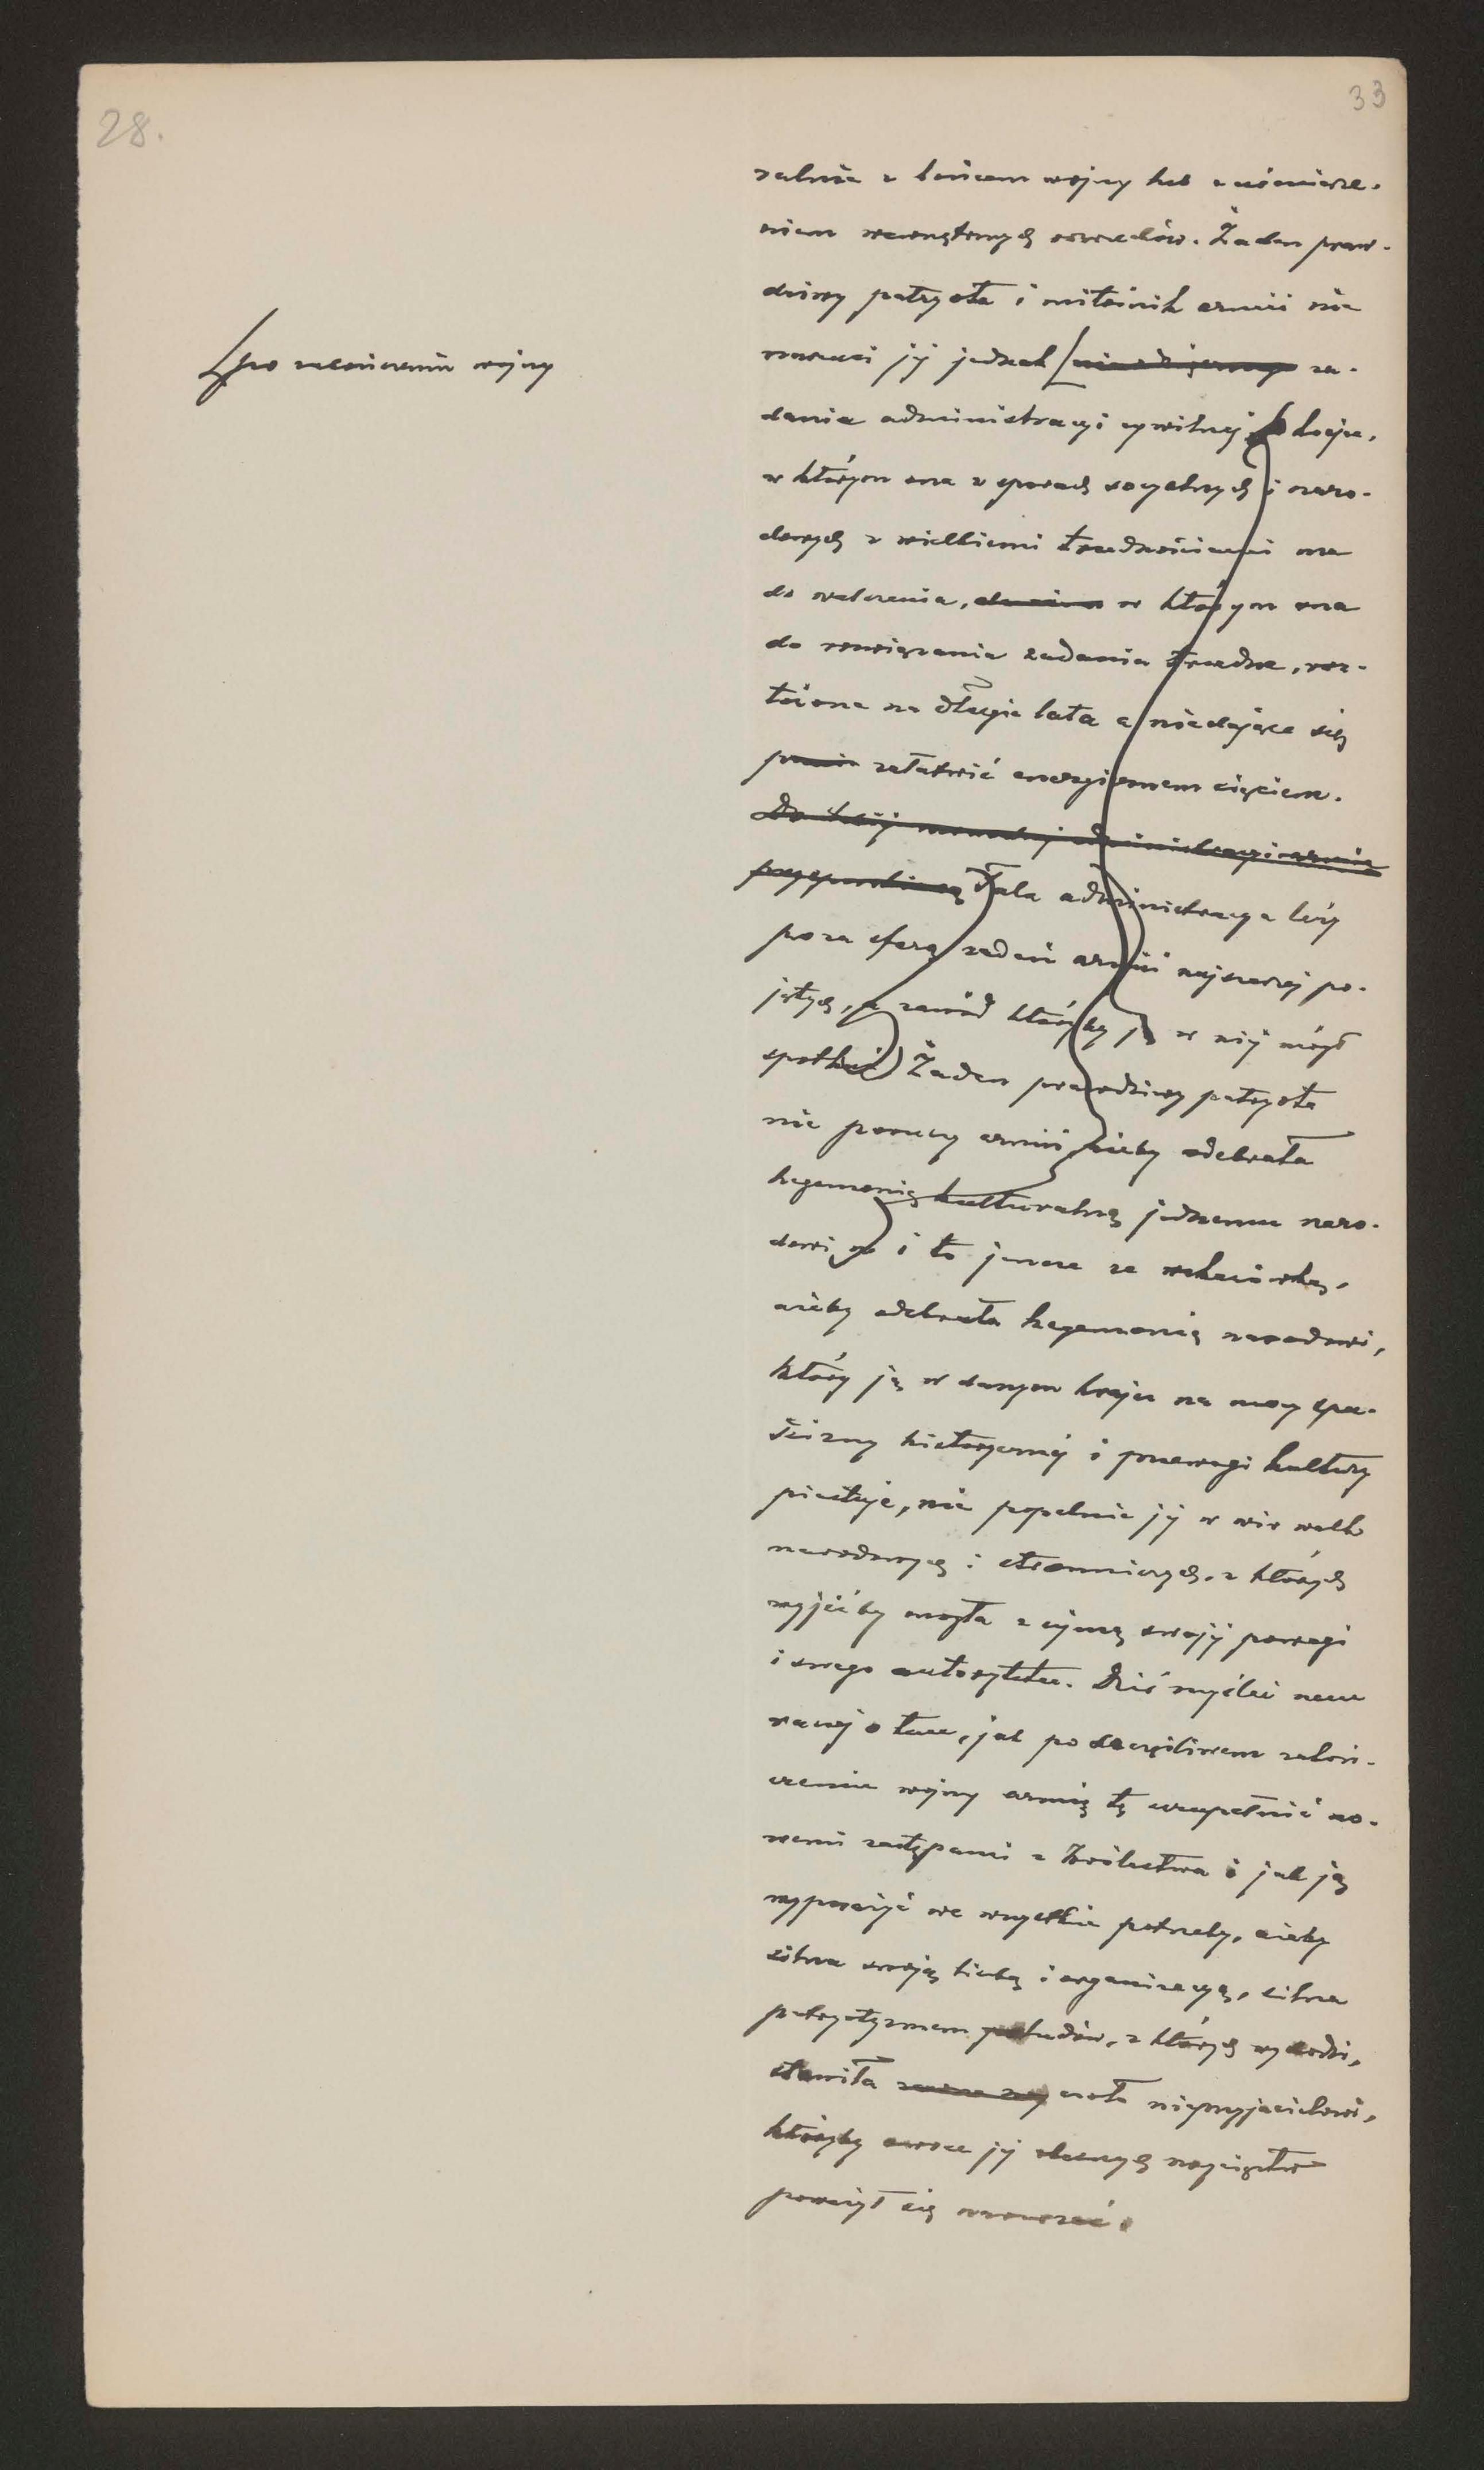 28.
33
ralnie z końcem wojny lub z uśmierze-
niem wewnętrznych rozruchów. Żaden praw-
dziwy patryota i miłośnik armii nie
narzuci jej jednak za-
po zakończeniu wojny
dania administracyi cywilnej kraju,
w którym ona w sporach socyalnych i naro-
dowych z wielkiemi trudnościami ma
do walczenia, w którym ona
do rozwiązania zadania trudne, roz-
łożone na długie lata a niedające się
załatwić energicznem cięciem.
Do takiej administracyi armii
Taka administracya leży
poza sferą zadań armii najszerzej po-
jętych, a zawód któryby ją w niej mógł
spotkać Żaden prawdziwy patryota
nie poruczy armii, ażeby odebrała
hegemonię kulturalną jednemu naro-
dowi i to jeszcze ze wskazówką,
ażeby odebrała hegemonię narodowi,
który ją w danym kraju na mocy spu-
ścizny historycznej i przewagi kultury
piastuje, nie popchnie jej w wir walk
narodowych i stronniczych, z których
wyjść by mogła z ujmą swojej powagi
i swego autorytetu. Dziś myśleć nam
raczej o tem, jak po szczęśliwem zakoń-
czeniu wojny armię tę uzupełnić no-
wemi zastępami z Królestwa i jak ją
wyposażyć we wszystkie potrzeby, ażeby
silna swoją liczbą i organizacyą, silna
patryotyzmem ludów, z których wychodzi,
stawiła czoło nieprzyjacielowi,
któryby owoce jej obecnych zwycięstw
poważył się naruszać.